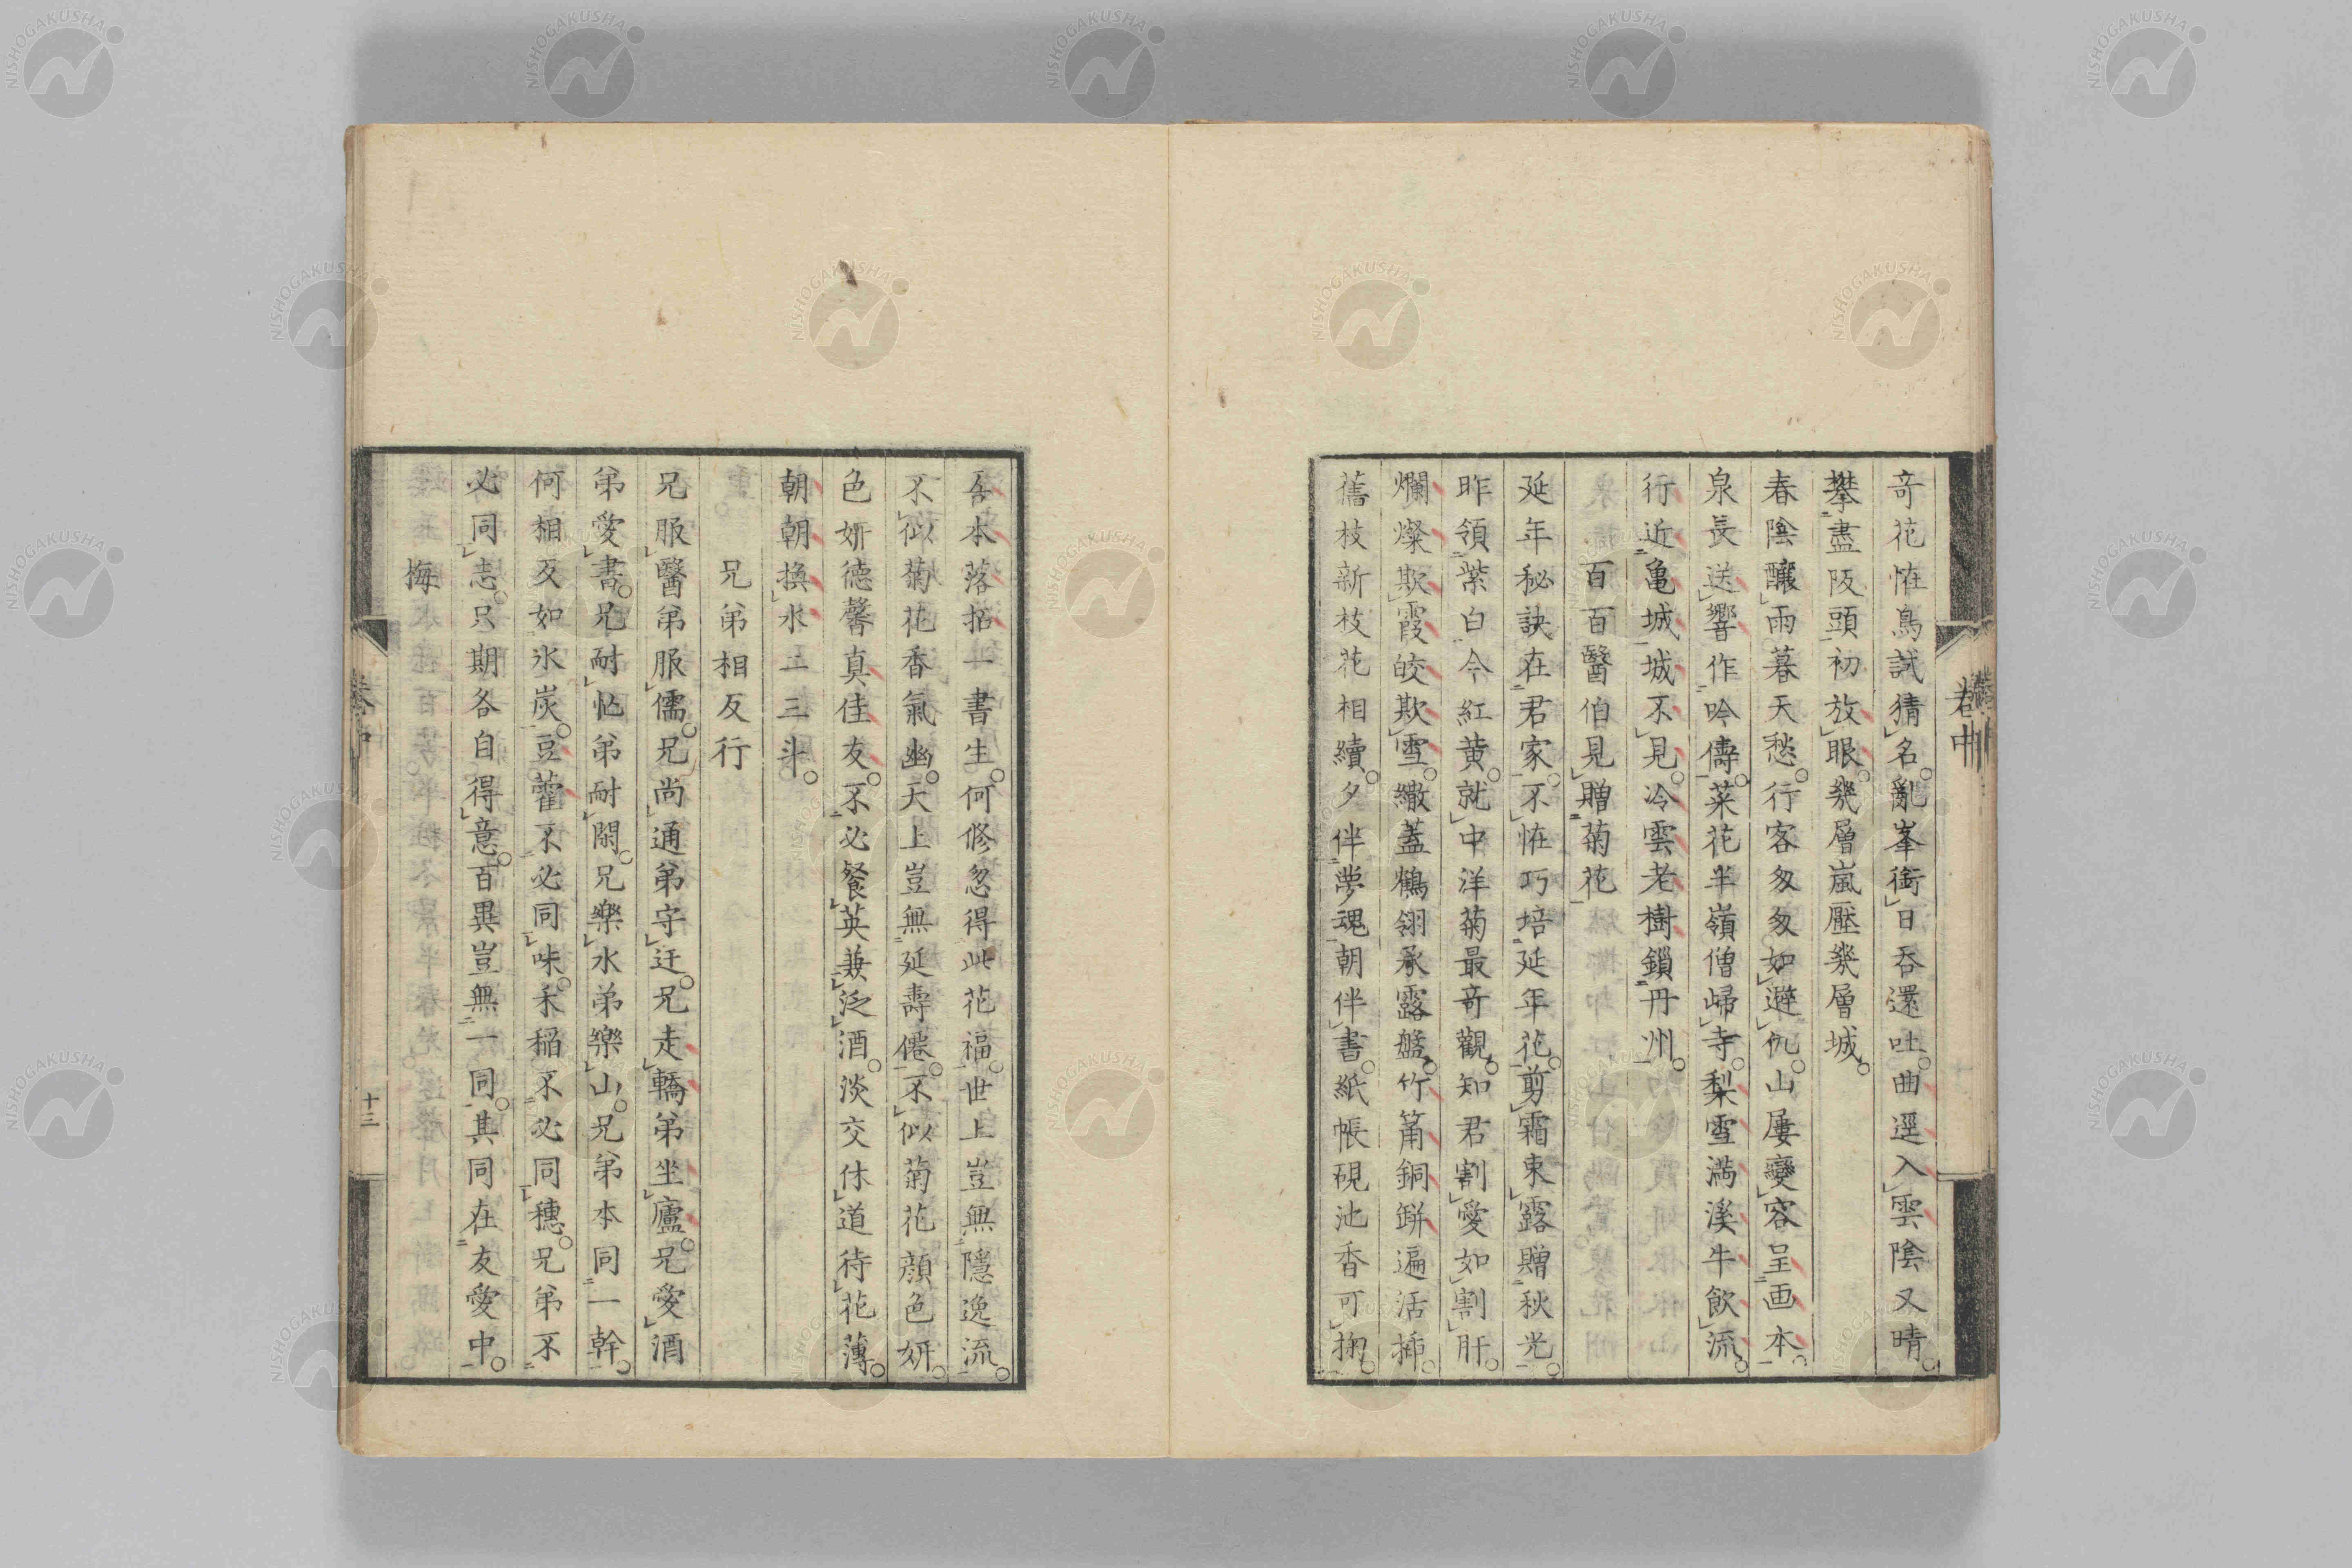 奇花恠鳥試猜名亂峯銜日呑還吐曲逕入雲陰又晴
攀盡阪頭初放眼幾層嵐壓幾層城
春陰釀雨暮天愁行客匆匆如避仇山屢變容呈画本
泉長送響作吟儔菜花半嶺僧歸寺梨雪満溪牛飲流
行近亀城城不見冷雲老樹鎖丹州
百百醫伯見贈菊花
延年秘訣在君家不恠巧培延年花剪霜束露贈秋光
昨領紫白今紅黄就中洋菊最奇觀知君割愛如割肝
爛燦欺霞皎欺雪繖蓋鶴翎承露盤竹筩銅缾遍活揷
舊枝新枝花相續夕伴夢魂朝伴書紙帳硯池香可掬
吾本落拓一書生何修忽得此花福世上豈無隱逸流
不似菊花香氣幽天上豈無延壽僊不似菊花顔色妍
色妍徳馨真佳友不必餐英兼泛酒淡交休道待花薄
朝朝換水二三斗
兄弟相反行
兄服醫弟服儒兄尚通弟守迂兄走轎弟坐廬兄愛酒
弟愛書兄耐忙弟耐閑兄樂水弟樂山兄弟本同一幹
何相反如氷炭豆藿不必同味禾稲不必同穗兄弟不
必同志只期各自得意百異豈無一同其同在友愛中
梅
卷中
十三
NISHOGAKUSHA